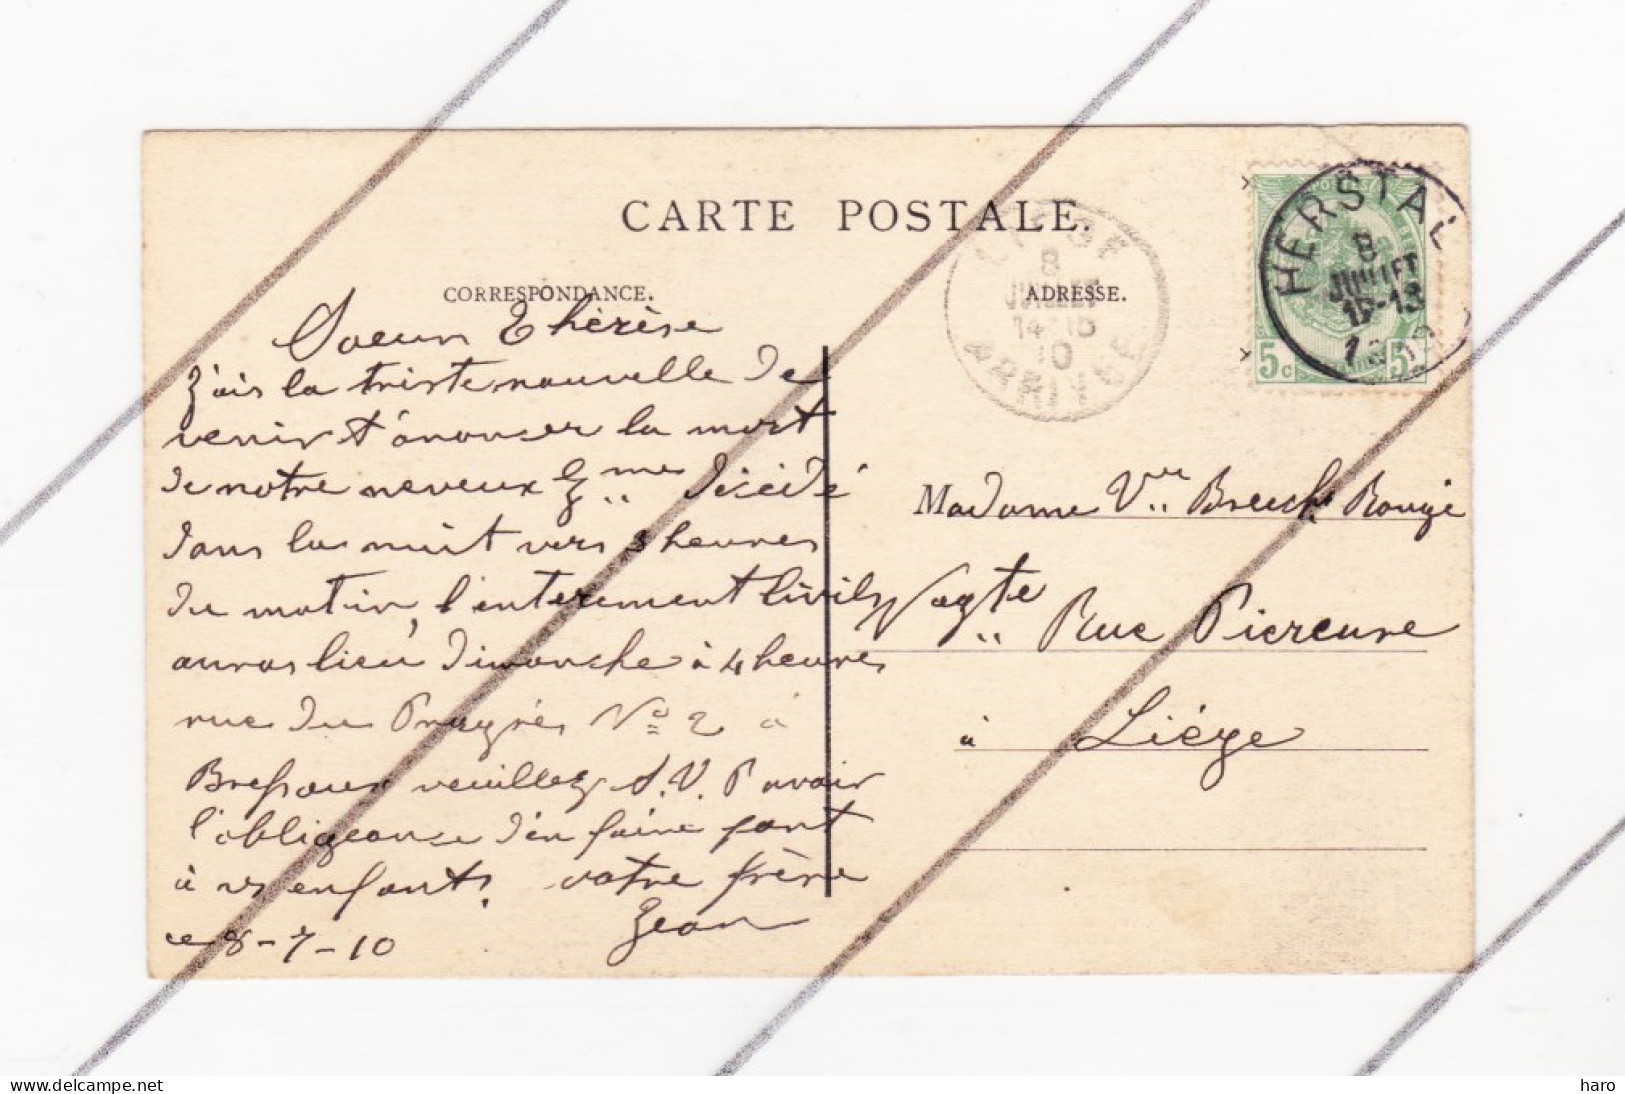 CARTE POSTALE.
CORRESPONDANCE.
ADRESSE.
Soeur Thérèse
j'ais la triste nouvelle de
venir t'ánonser la mort
de notre neveux G.me décédé
dans la nuit vers 3 heures
du matin, l'enterement Civile
auras lieu dimanche à 4 heures
rue du Progrès No 2 à
Bressoux veuillez S.V.P avoir
l'obligeanse d'en faire part
à vs enfants. votre frère
Jean
ce 8-7-10
Madame Vve Rouge
Rue Piereuse
à Liége
LIEGE
8
JUILLET
14-15
10
ARRIVEE
HERSTAL
8
JUILLET
POSTES
5c
5c
delcampe.net
haro